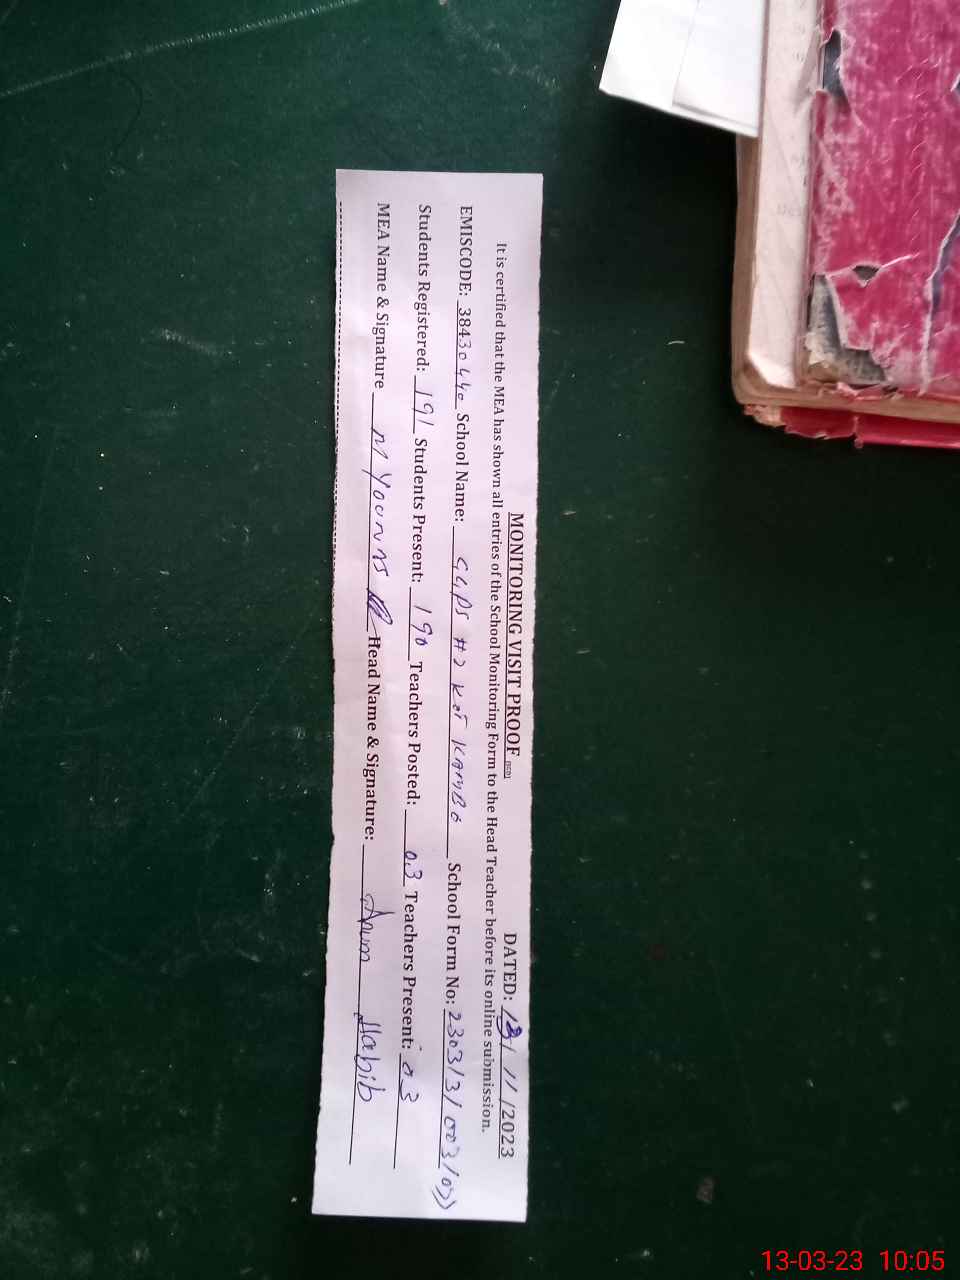 MONITORING VISIT PROOF (SED) DATED: 13/11/2023
It is certified that the MEA has shown all entries of the School Monitoring Form to the Head Teacher before its online submission.
EMISCODE: 38430440 School Name: GGPS #2 KOT KAMBO School Form No:
Students Registered: 191 Students Present: 190 Teachers Posted: 03 Teachers Present: 03
MEA Name & Signature M YOUNAS Head Name & Signature: Anum Habib
13-03-23 10:05